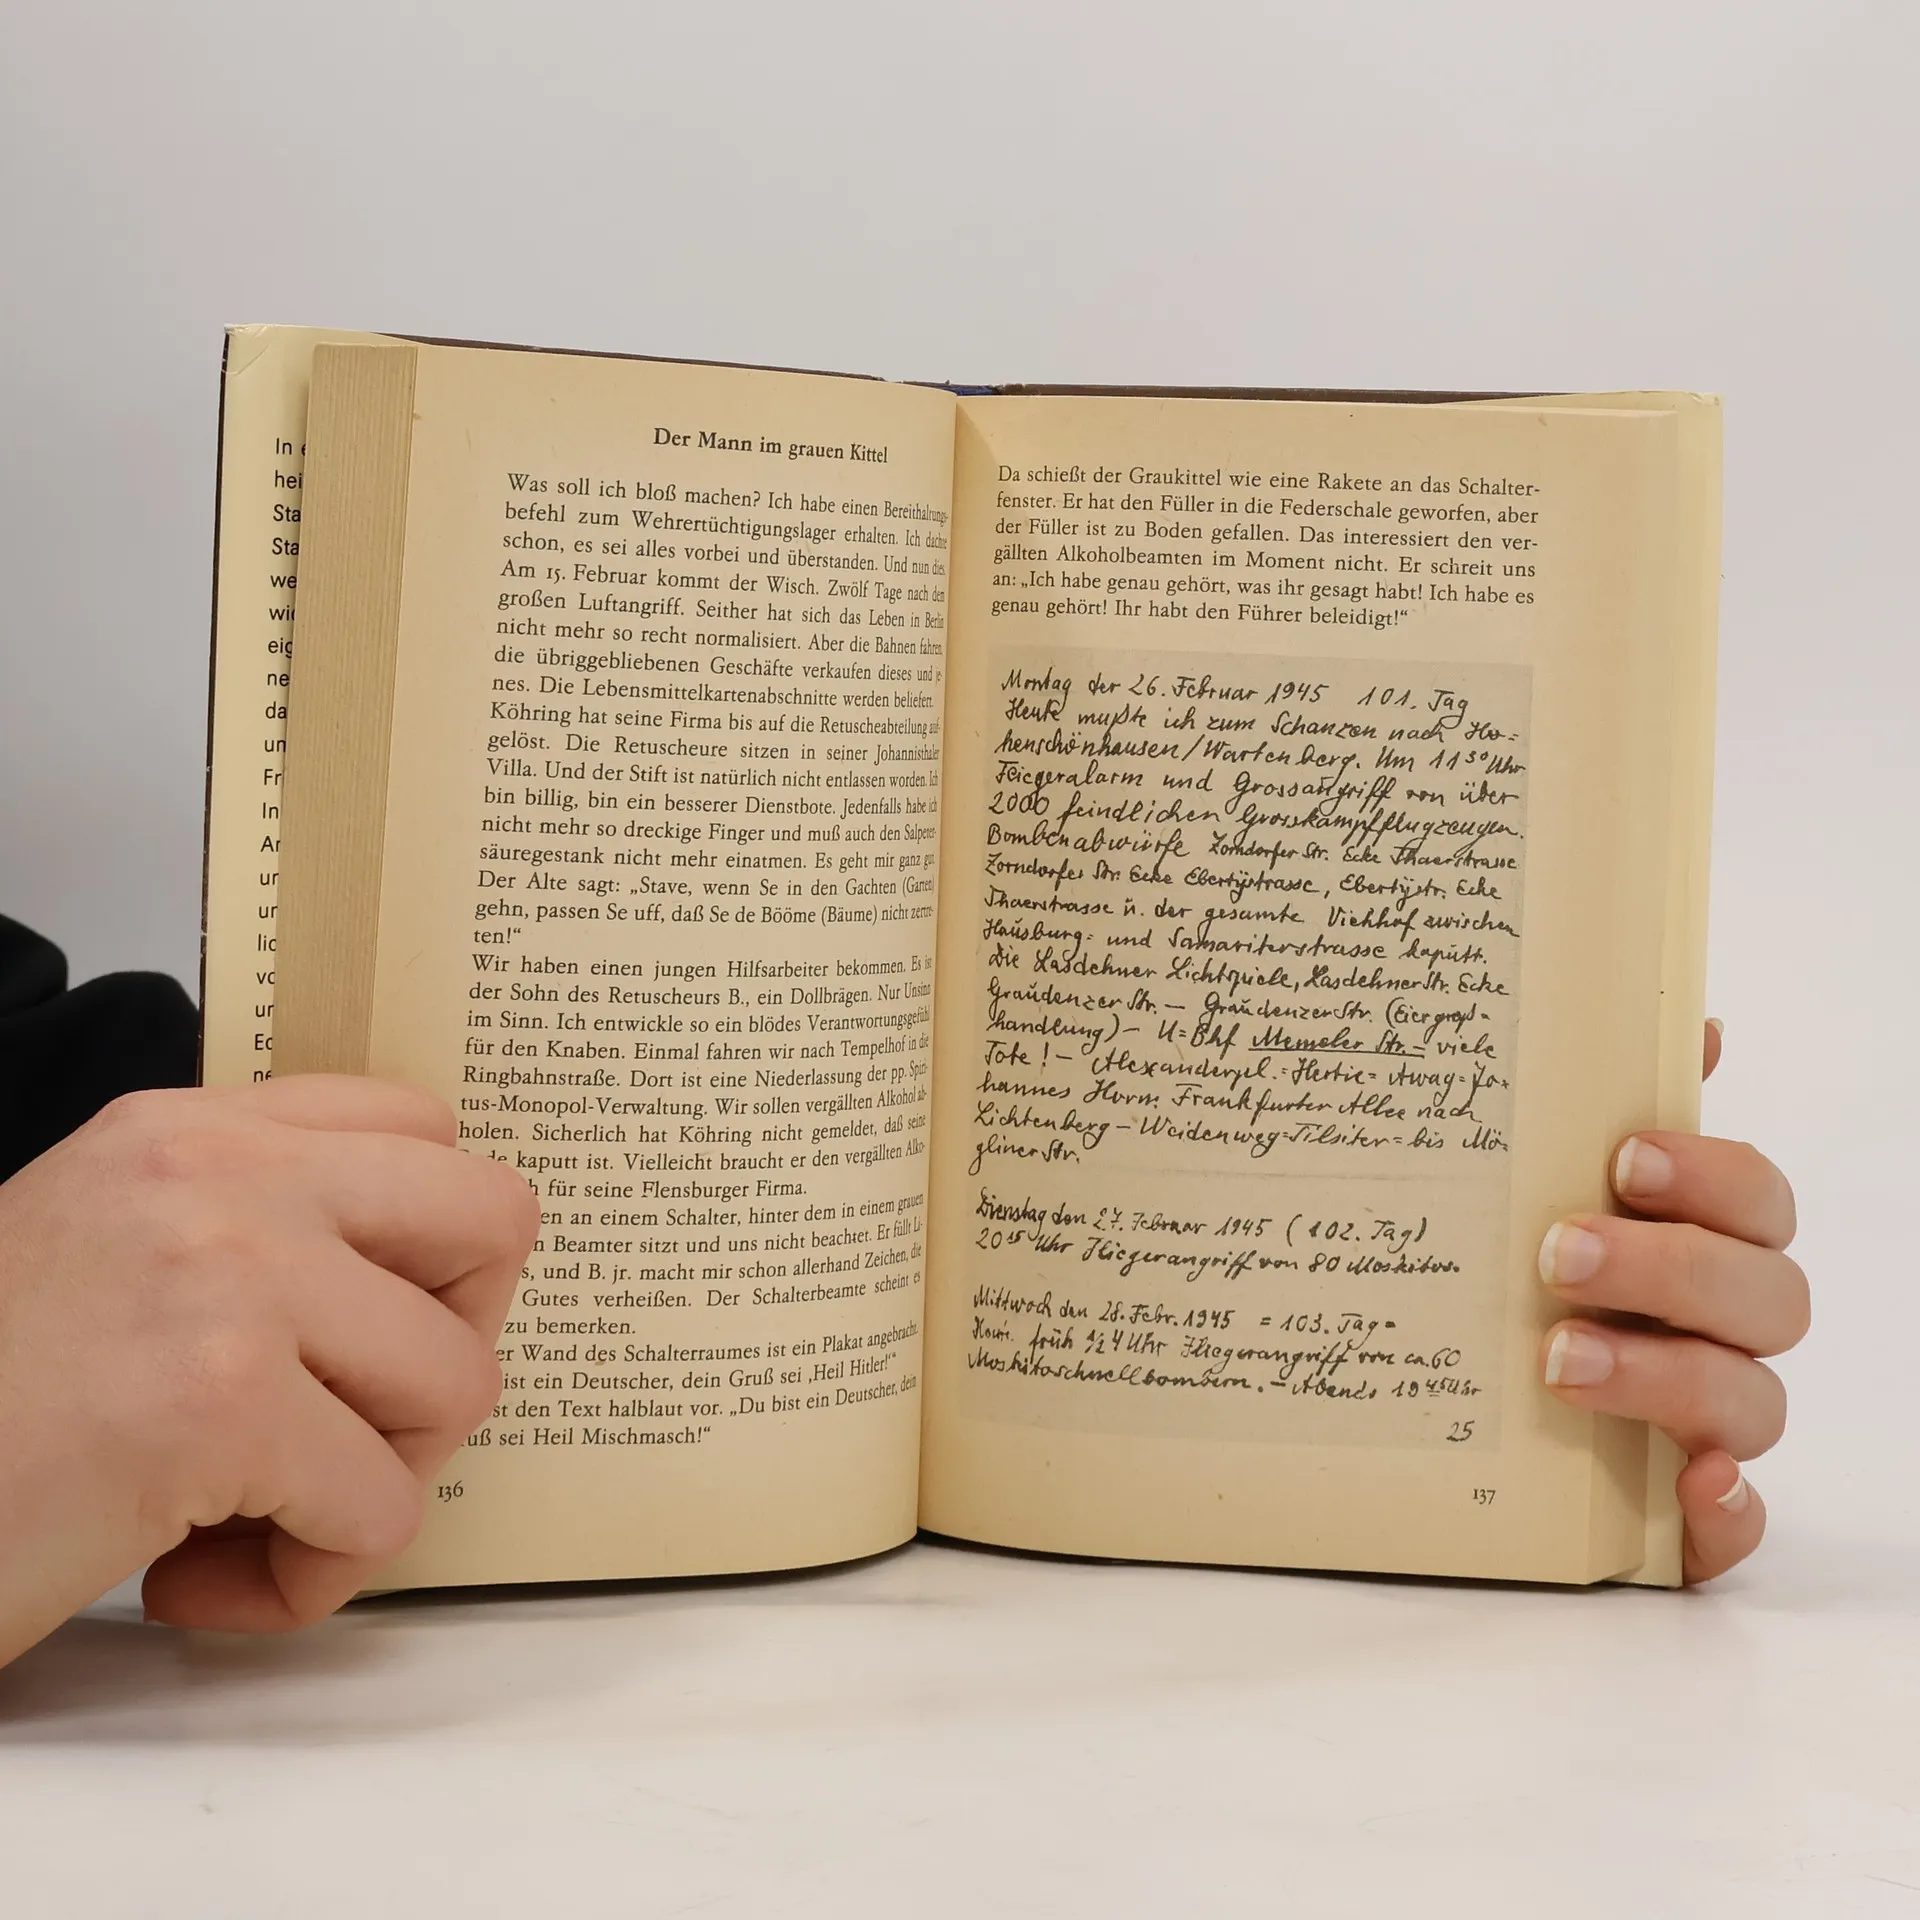 In
hei
Sta
Sta
we
wi
eig
ne
da
un
Fr
In
Ar
ur
ur
lic
vo
ur
Ec
ne
Der Mann im grauen Kittel
Was soll ich bloß machen? Ich habe einen Bereithaltungs-
befehl zum Wehrertüchtigungslager erhalten. Ich dachte
schon, es sei alles vorbei und überstanden. Und nun dies.
Am 15. Februar kommt der Wisch. Zwölf Tage nach dem
großen Luftangriff. Seither hat sich das Leben in Berlin
nicht mehr so recht normalisiert. Aber die Bahnen fahren,
die übriggebliebenen Geschäfte verkaufen dieses und je-
nes. Die Lebensmittelkartenabschnitte werden beliefert.
Köhring hat seine Firma bis auf die Retuscheabteilung auf-
gelöst. Die Retuscheure sitzen in seiner Johannisthaler
Villa. Und der Stift ist natürlich nicht entlassen worden. Ich
bin billig, bin ein besserer Dienstbote. Jedenfalls habe ich
nicht mehr so dreckige Finger und muß auch den Salpeter-
säuregestank nicht mehr einatmen. Es geht mir ganz gut.
Der Alte sagt: „Stave, wenn Se in den Gachten (Garten)
gehn, passen Se uff, daß Se de Bööme (Bäume) nicht zertre-
ten!“
Wir haben einen jungen Hilfsarbeiter bekommen. Es ist
der Sohn des Retuscheurs B., ein Dollbrägen. Nur Unsinn
im Sinn. Ich entwickle so ein blödes Verantwortungsgefühl
für den Knaben. Einmal fahren wir nach Tempelhof in die
Ringbahnstraße. Dort ist eine Niederlassung der pp. Spiri-
tus-Monopol-Verwaltung. Wir sollen vergällten Alkohol ab-
holen. Sicherlich hat Köhring nicht gemeldet, daß seine
kaputt ist. Vielleicht braucht er den vergällten Alko-
h für seine Flensburger Firma.
en an einem Schalter, hinter dem in einem grauen
n Beamter sitzt und uns nicht beachtet. Er füllt Li-
s, und B. jr. macht mir schon allerhand Zeichen, die
Gutes verheißen. Der Schalterbeamte scheint es
zu bemerken.
er Wand des Schalterraumes ist ein Plakat angebracht.
ist ein Deutscher, dein Gruß sei ‚Heil Hitler!‘“
st den Text halblaut vor. „Du bist ein Deutscher, dein
uß sei Heil Mischmasch!“
136
Da schießt der Graukittel wie eine Rakete an das Schalter-
fenster. Er hat den Füller in die Federschale geworfen, aber
der Füller ist zu Boden gefallen. Das interessiert den ver-
gällten Alkoholbeamten im Moment nicht. Er schreit uns
an: „Ich habe genau gehört, was ihr gesagt habt! Ich habe es
genau gehört! Ihr habt den Führer beleidigt!“
Montag der 26. Februar 1945 101. Tag
Heute mußte ich zum Schanzen nach Ho=
henschönhausen/Wartenberg. Um 11 30 Uhr
Fliegeralarm und Grossangriff von über
2000 feindlichen Grosskampfflugzeugen.
Bombenabwürfe Zorndorfer Str. Ecke Thaerstrasse
Zorndorfer Str. Ecke Ebertystrasse, Ebertystr. Ecke
Thaerstrasse u. der gesamte Viehhof zwischen
Hausburg= und Samariterstrasse kaputt.
Die Lasdehner Lichtspiele, Lasdehner Str. Ecke
Graudenzer Str. — Graudenzer Str. (Eiergroß=
handlung) — U=Bhf Memeler Str. — viele
Tote! — Alexanderpl. = Hertie = Awag = Jo=
hannes Horn. Frankfurter Allee nach
Lichtenberg — Weidenweg = Tilsiter = bis Mö=
gliner Str.
Dienstag den 27. Februar 1945 (102. Tag)
20 15 Uhr Fliegerangriff von 80 Moskitos.
Mittwoch den 28. Febr. 1945 = 103. Tag =
früh 1/2 4 Uhr Fliegerangriff von ca. 60
Moskitoschnellbombern. — Abends 19 45 Uhr
25
137